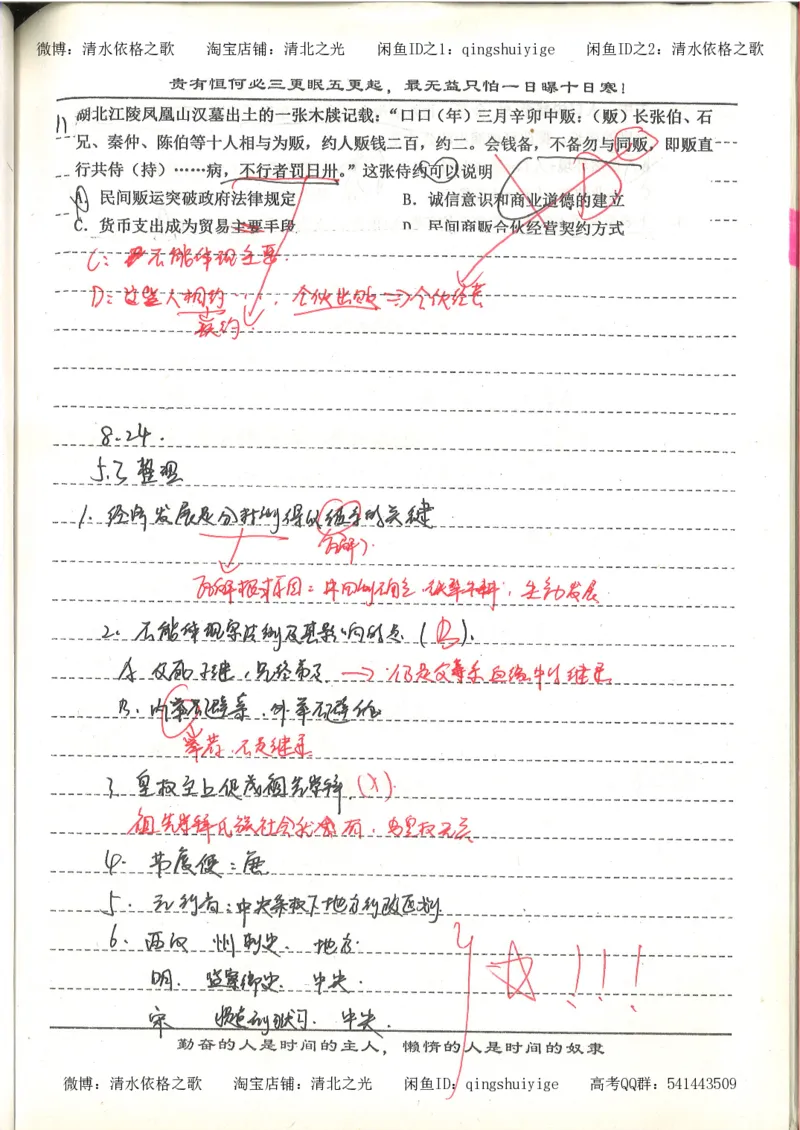 微博：清水依格之歌 淘宝店铺：清北之光 闲鱼ID之1：qingshuiyige 闲鱼ID之2：清水依格之歌
贵有恒何必三更眠五更起，最无益只怕一日曝十日寒！
11
湖北江陵凤凰山汉墓出土的一张木牍记载：“口口（年）三月辛卯中贩：（贩）长张伯、石
兄、秦仲、陈伯等十人相与为贩，约人贩钱二百，约二。会钱备，不备勿与同贩，即贩直
行共侍（持）……病，不行者罚日卅。”这张侍约可以说明
A. 民间贩运突破政府法律规定 B. 诚信意识和商业道德的建立
C. 货币支出成为贸易主要手段 D. 民间商贩合伙经营契约方式
C：不能体现主要.
D：这些人相约……，合伙出贩⇒合伙经营
契约
8.24.
5.3 整理
1. 经济发展是分封制得以维系的关键
瓦解）.
瓦解根本原因：井田制 生动发展
2. 不能体现宗法制及其影响的是（B）.
A. 父死子继，兄终弟及 → 仍是父辈系血缘中继承
B. 内举不避亲，外举不避仇
举荐，不是继承.
3 皇权至上促成祖先崇拜（X）.
祖先崇拜氏族社会就有，与皇权无关
4. 节度使：唐
5. 元行省：中央集权下地方行政区划
6. 两汉 州刺史. 地方.
明. 监察御史. 中央.
宋 中央.
!!!
勤奋的人是时间的主人，懒惰的人是时间的奴隶
微博：清水依格之歌 淘宝店铺：清北之光 闲鱼ID：qingshuiyige 高考QQ群：541443509